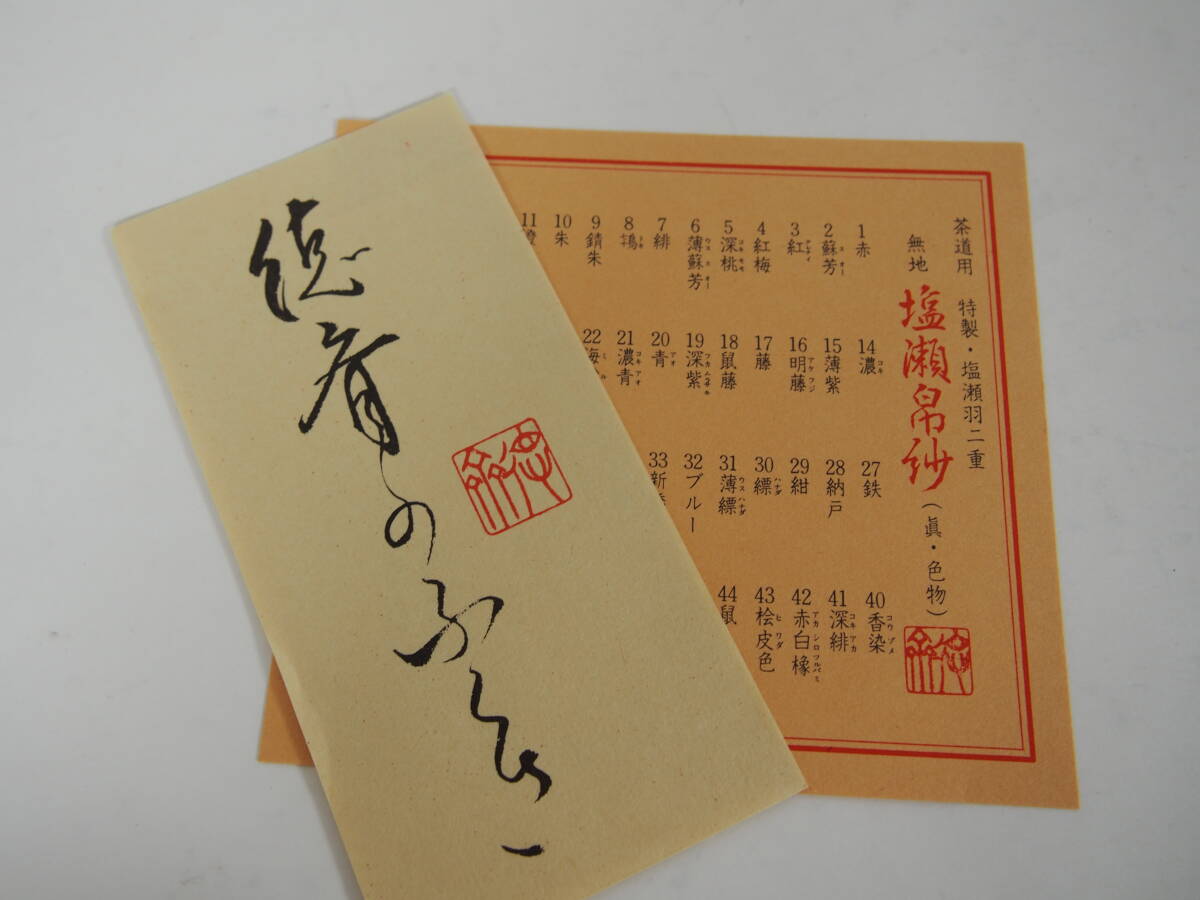 茶道用 特製・塩瀬羽二重
無地 塩瀬帛紗(眞・色物)
1赤
2蘇芳
3紅
4紅梅
5深桃
6薄蘇芳
7緋
8鴇
9錆朱
10朱
11
14濃
15薄紫
16明藤
17藤
18鼠藤
19深紫
20青
21濃青
22海
27鉄
28納戸
29紺
30縹
31薄縹
32ブルー
33新
40香染
41深緋
42赤白橡
43桧皮色
44鼠
徳斎のふくさ